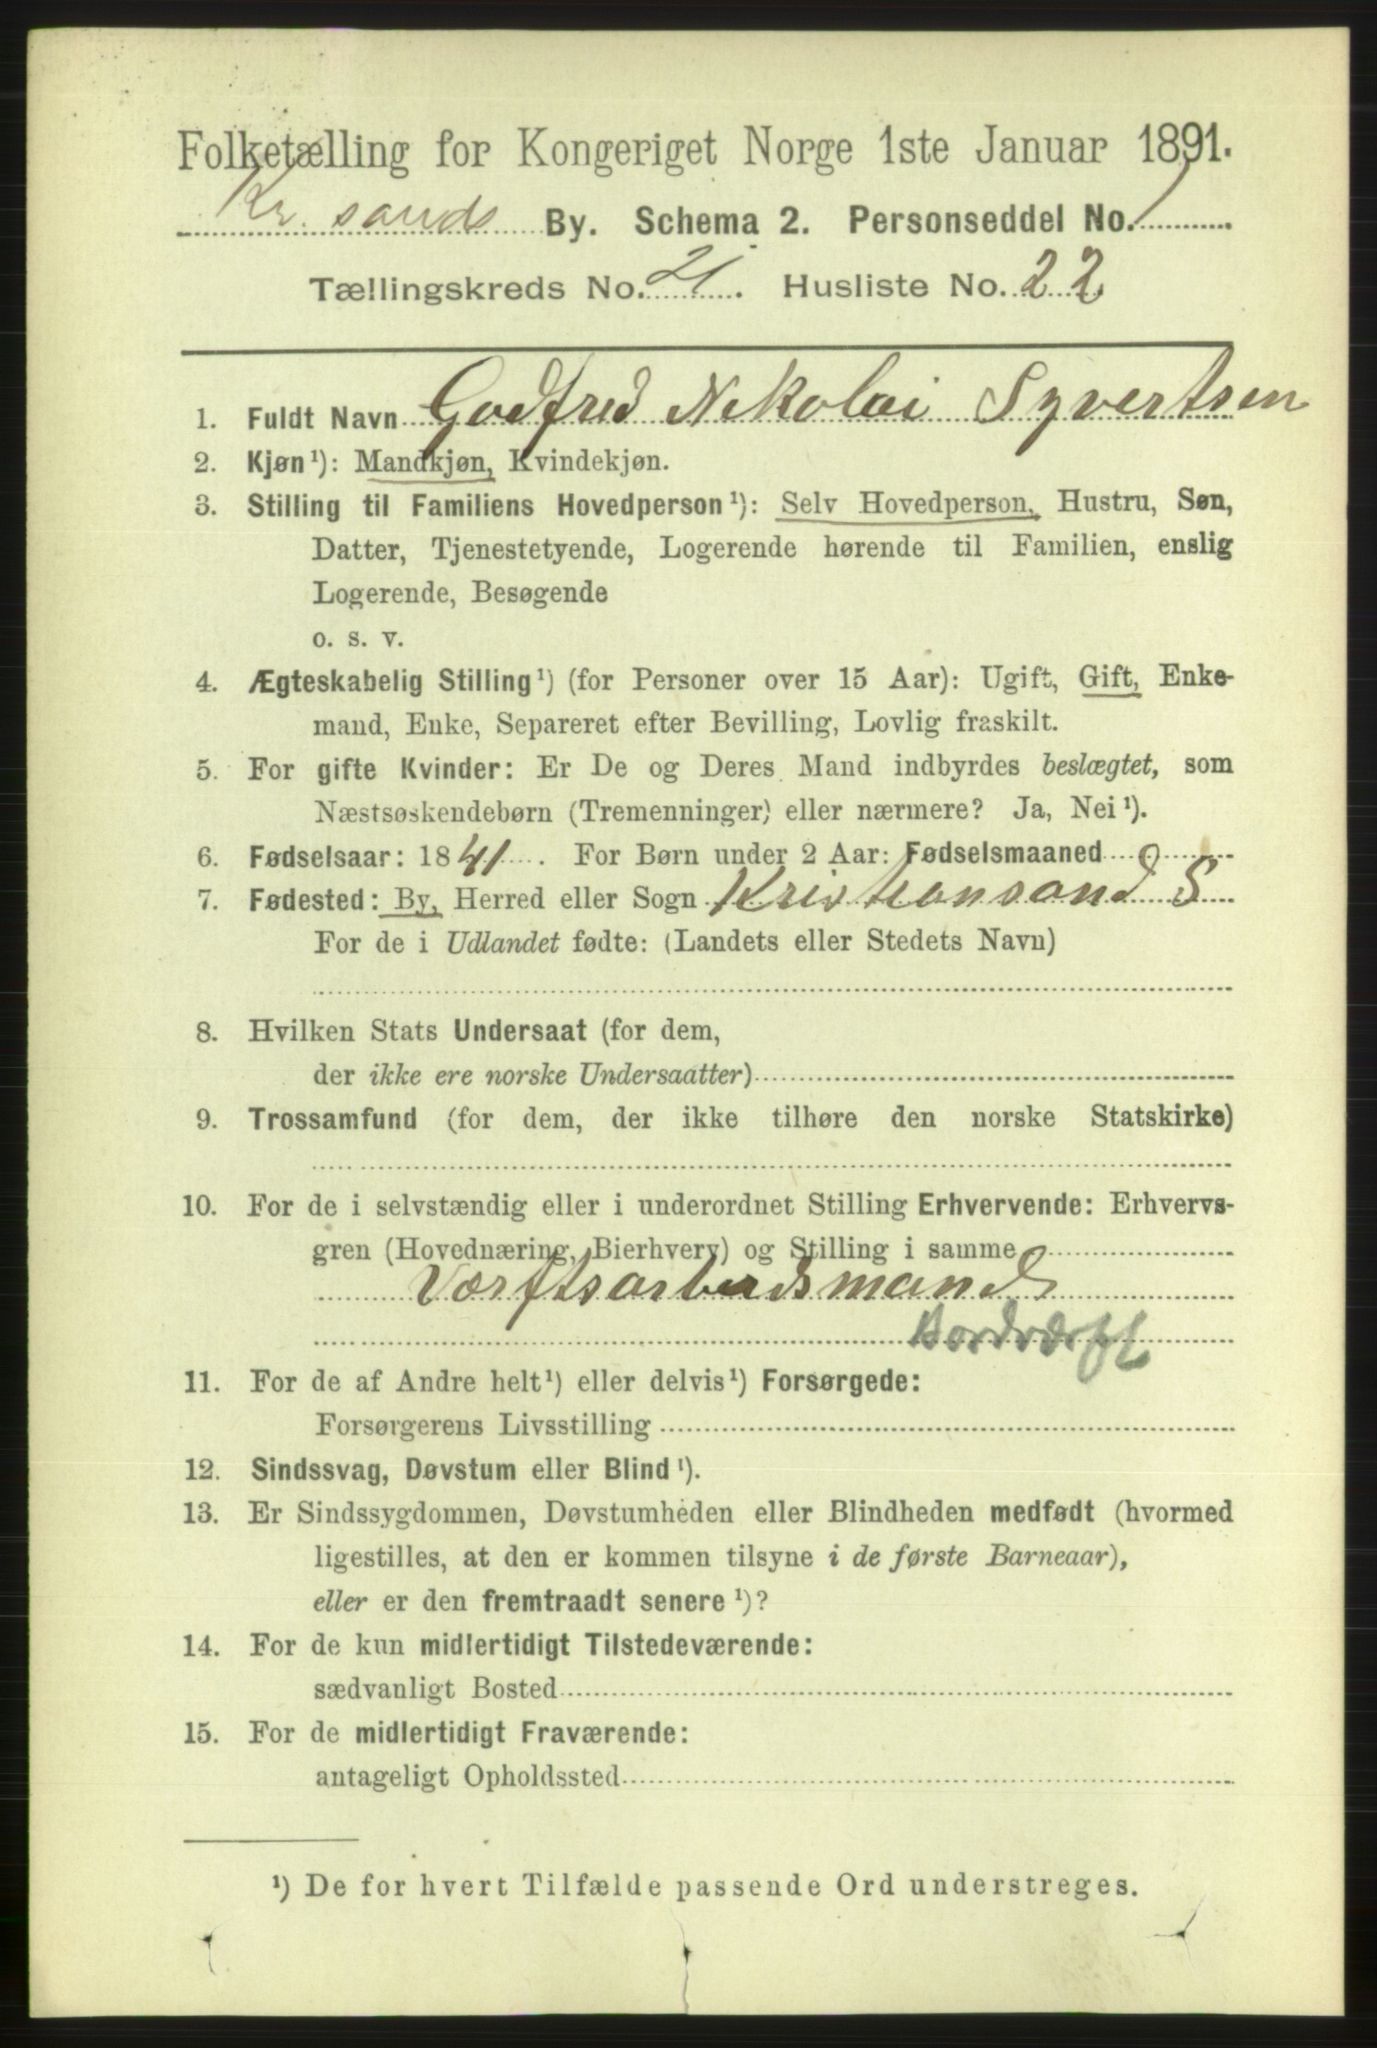 Folketælling for Kongeriget Norge 1ste Januar 1891.
Kr.sands By. Schema 2. Personseddel No. 1
Tællingskreds No. 21. Husliste No. 22
1. Fuldt Navn Godfred Nikolai Syvertsen
2. Kjøn¹): Mandkjøn, Kvindekjøn.
3. Stilling til Familiens Hovedperson¹): Selv Hovedperson, Hustru, Søn,
Datter, Tjenestetyende, Logerende hørende til Familien, enslig
Logerende, Besøgende
o. s. v.
4. Ægteskabelig Stilling¹) (for Personer over 15 Aar): Ugift, Gift, Enke-
mand, Enke, Separeret efter Bevilling, Lovlig fraskilt.
5. For gifte Kvinder: Er De og Deres Mand indbyrdes beslægtet, som
Næstsøskendebørn (Tremenninger) eller nærmere? Ja, Nei¹).
6. Fødselsaar: 1841. For Børn under 2 Aar: Fødselsmaaned
7. Fødested: By, Herred eller Sogn Kristiansand S
For de i Udlandet fødte: (Landets eller Stedets Navn)
8. Hvilken Stats Undersaat (for dem,
der ikke ere norske Undersaatter)
9. Trossamfund (for dem, der ikke tilhøre den norske Statskirke)
10. For de i selvstændig eller i underordnet Stilling Erhvervende: Erhvervs-
gren (Hovednæring, Bierhverv) og Stilling i samme
Værftsarbeidsmand
11. For de af Andre helt¹) eller delvis¹) Forsørgede:
Forsørgerens Livsstilling
12. Sindssvag, Døvstum eller Blind¹).
13. Er Sindssygdommen, Døvstumheden eller Blindheden medfødt (hvormed
ligestilles, at den er kommen tilsyne i de første Barneaar),
eller er den fremtraadt senere¹)?
14. For de kun midlertidigt Tilstedeværende:
sædvanligt Bosted
15. For de midlertidigt Fraværende:
antageligt Opholdssted
¹) De for hvert Tilfælde passende Ord understreges.